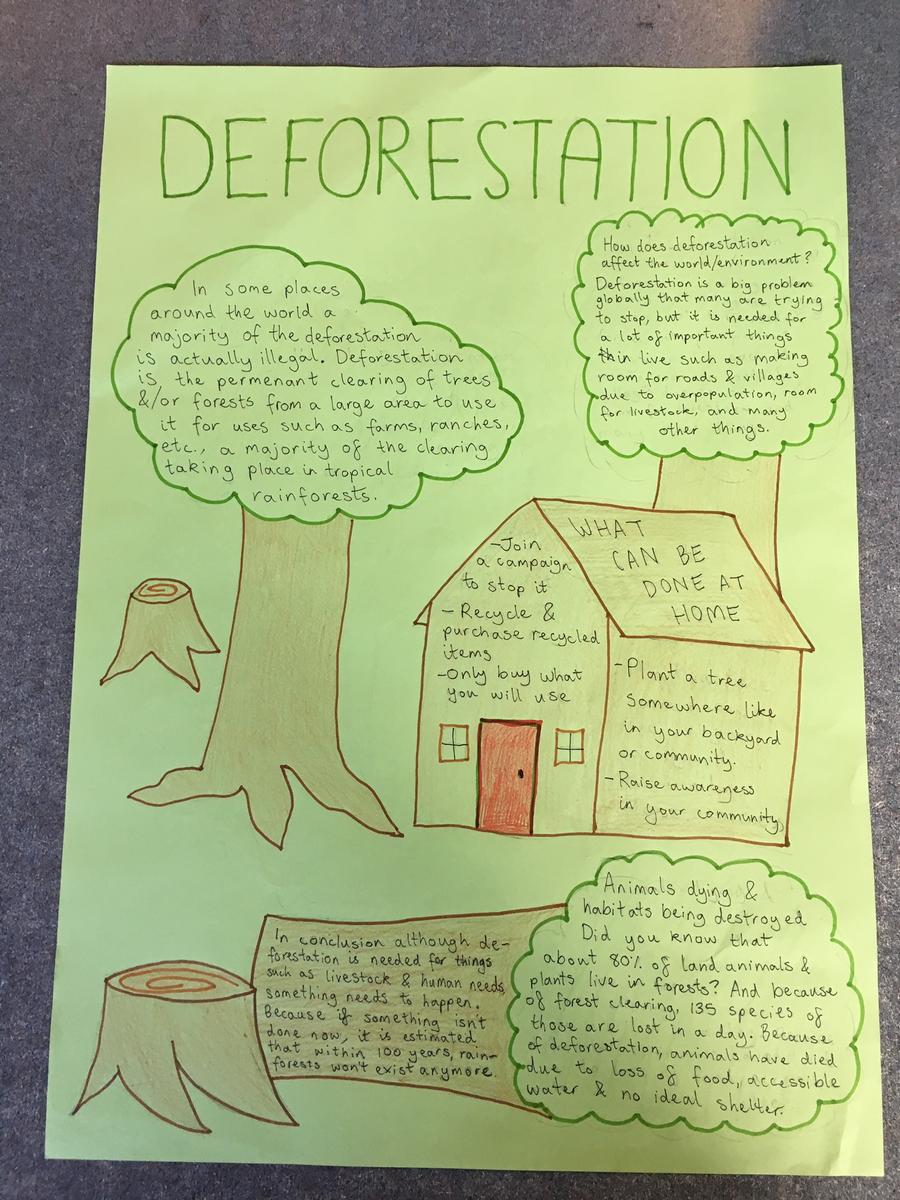 DEFORESTATION
In some places
around the world a
majority of the deforestation
is actually illegal. Deforestation
is the permenant clearing of trees
&/or forests from a large area to use
it for uses such as farms, ranches,
etc., a majority of the clearing
taking place in tropical
rainforests.
How does deforestation
affect the world/environment?
Deforestation is a big problem
globally that many are trying
to stop, but it is needed for
a lot of important things
thin live such as making
room for roads & villages
due to overpopulation, room
for livestock, and many
other things.
WHAT
CAN BE
DONE AT
HOME
-Join
a campaign
to stop it
- Recycle &
purchase recycled
items
-Only buy what
you will use
-Plant a tree
somewhere like
in your backyard
or community.
-Raise awareness
in your community
In conclusion although de-
forestation is needed for things
such as livestock & human needs,
something needs to happen.
Because if something isn't
done now, it is estimated
that within 100 years, rain-
forests won't exist anymore.
Animals dying &
habitats being destroyed
Did you know that
about 80% of land animals &
plants live in forests? And because
of forest clearing, 135 species of
those are lost in a day. Because
of deforestation, animals have died
due to loss of food, accessible
water & no ideal shelter.